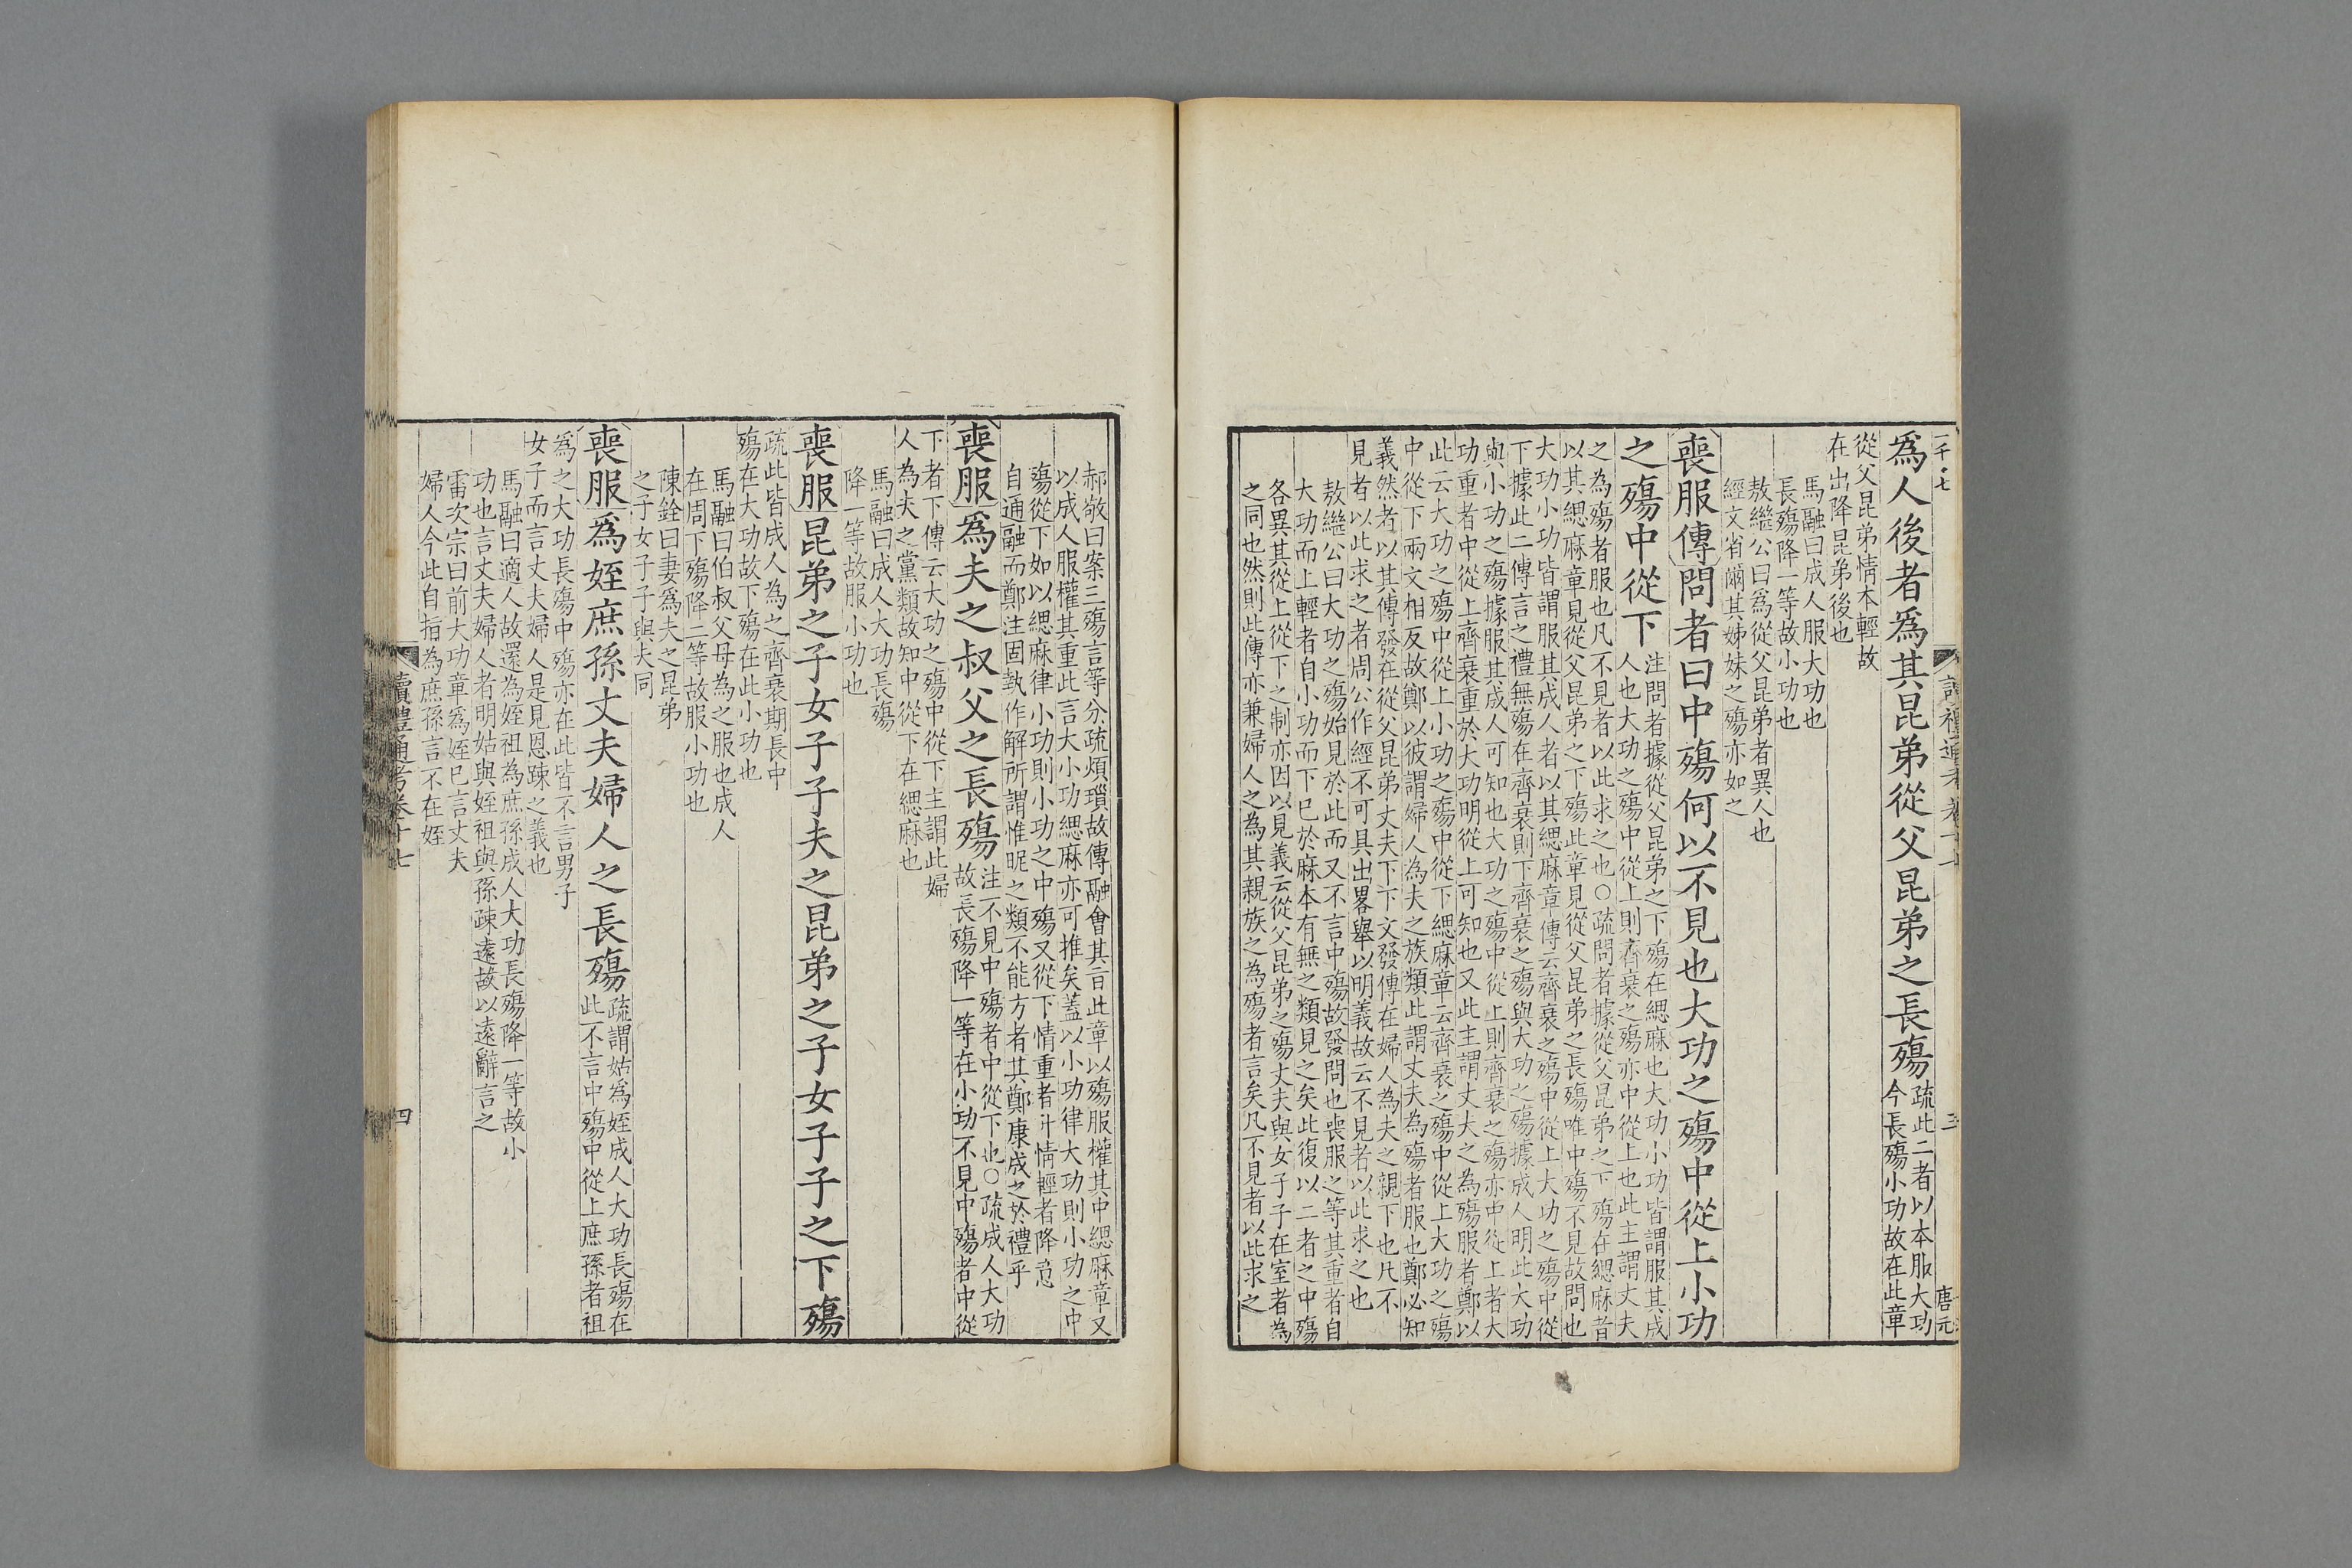 爲人後者爲其昆弟從父昆弟之長殤
疏此二者以本服大功
今長殤小功故在此章
從父昆弟情本輕故
在出降昆弟後也
馬融曰成人服大功也
長殤降一等故小功也
敖繼公曰爲從父昆弟者異人也
經文省爾其姊妹之殤亦如之
喪服傳問者曰中殤何以不見也大功之殤中從上小功
之殤中從下
注問者據從父昆弟之下殤在緦麻也大功小功皆謂服其成
人也大功之殤中從上則齊衰之殤亦中從上也此主謂丈夫
之為殤者服也凡不見者以此求之也○疏問者據從父昆弟之下殤在緦麻者
以其緦麻章見從父昆弟之下殤此章見從父昆弟之長殤唯中殤不見故問也
大功小功皆謂服其成人者以其緦麻章傳云齊衰之殤中從上大功之殤中從
下據此二傳言之禮無殤在齊衰則下齊衰之殤與大功之殤據成人明此大功
與小功之殤據服其成人可知也大功之殤中從上則齊衰之殤亦中從上者大
功重者中從上齊衰重於大功明從上可知也又此主謂丈夫之為殤服者鄭以
此云大功之殤中從上小功之殤中從下緦麻章云齊衰之殤中從上大功之殤
中從下兩文相反故鄭以彼謂婦人為夫之族類此謂丈夫為殤者服也鄭必知
義然者以其傳發在從父昆弟丈夫下下文發傳在婦人為夫之親下也凡不
見者以此求之者周公作經不可具出畧舉以明義故云不見者以此求之也
敖繼公曰大功之殤始見於此而又不言中殤故發問也喪服之等其重者自
大功而上輕者自小功而下已於麻本有無之類見之矣此復以二者之中殤
各異其從上從下之制亦因以見義云從父昆弟之殤丈夫與女子子在室者為
之同也然則此傳亦兼婦人之為其親族之為殤者言矣凡不見者以此求之
三
唐元
郝敬曰案三殤言等分疏煩瑣故傳融會其言此章以殤服權其中緦麻章又
以成人服權其重此言大小功緦麻亦可推矣蓋以小功律大功則小功之中
殤從下如以緦麻律小功則小功之中殤又從下情重者升情輕者降意
自通融而鄭注固執作解所謂惟昵之類不能方者其鄭康成之於禮乎
喪服爲夫之叔父之長殤
注不見中殤者中從下也○疏成人大功
故長殤降一等在小功不見中殤者中從
下者下傳云大功之殤中從下主謂此婦
人為夫之黨類故知中從下在緦麻也
馬融曰成人大功長殤
降一等故服小功也
喪服昆弟之子女子子夫之昆弟之子女子子之下殤
疏此皆成人為之齊衰期長中
殤在大功故下殤在此小功也
馬融曰伯叔父母為之服也成人
在周下殤降二等故服小功也
陳銓曰妻爲夫之昆弟
之子女子子與夫同
喪服爲姪庶孫丈夫婦人之長殤
疏謂姑爲姪成人大功長殤在
此不言中殤中從上庶孫者祖
為之大功長殤中殤亦在此皆不言男子
女子而言丈夫婦人是見恩疎之義也
馬融曰適人故還為姪祖為庶孫成人大功長殤降一等故小
功也言丈夫婦人者明姑與姪祖與孫疎遠故以遠辭言之
雷次宗曰前大功章爲姪已言丈夫
婦人今此自指為庶孫言不在姪
讀禮通考卷十七
四